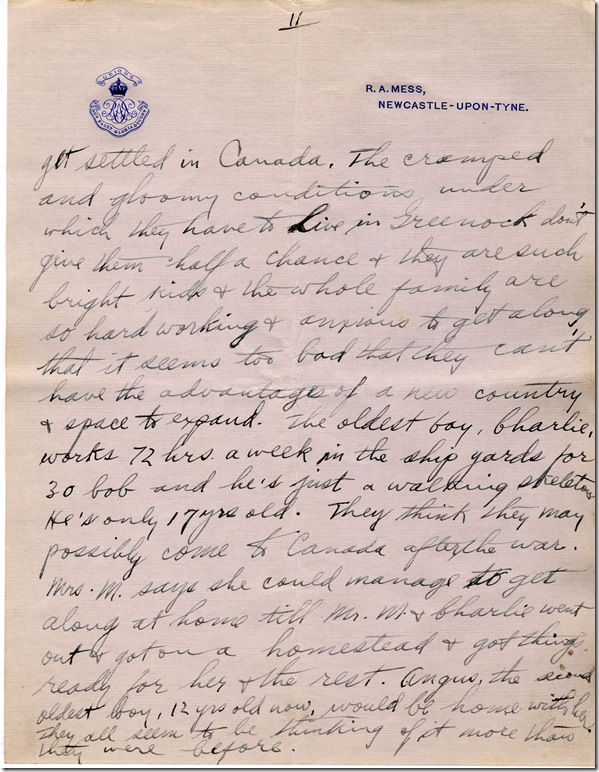 11
UBIQUE
QUO FAS ET GLORIA DUCUNT
R.A. MESS,
NEWCASTLE-UPON-TYNE.
get settled in Canada. The cramped
and gloomy conditions under
which they have to live in Greenock don't
give them half a chance & they are such
bright kids & the whole family are
so hard working & anxious to get along
that it seems too bad that they can't
have the advantages of a new country
& space to expand. The oldest boy, Charlie,
works 72 hrs. a week in the ship yards for
30 bob and he's just a walking skeleton
He's only 17 yrs old. They think they may
possibly come to Canada after the war.
Mrs. M. says she could manage to get
along at home till Mr. M. & Charlie went
out & got on a homestead & got things
ready for her & the rest. Angus, the second
oldest boy, 12 yrs old now, would be home with her.
They all seem to be thinking of it more than
they were before.